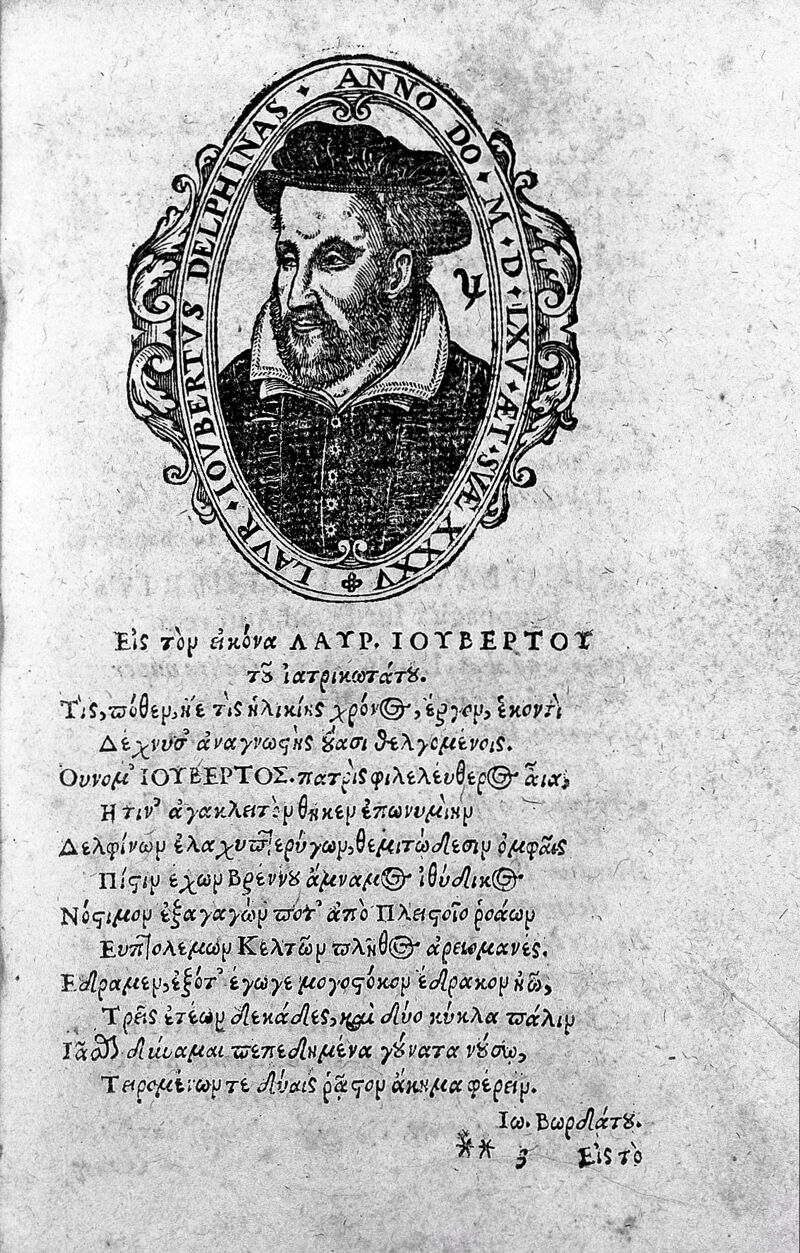 LAVR · IOVBERTVS DELPHINAS · ANNO DO · M · D · LXV · ÆT · SVÆ XXXV
Εἰς τὸν εἰκόνα ΛΑΥΡ. ΙΟΥΒΕΡΤΟΥ
τοῦ ἰατρικωτάτου.
Τίς, πόθεν, ἠὲ τὶς ἡλικίης χρόνος, ἔργον, ἑκοντὶ
Δέχνυσ' ἀναγνωςῆς οὔασι θελγομένοις.
Οὔνομ' ΙΟΥΒΕΡΤΟΣ. πατρὶς φιλελεύθερος αἶα,
Ἡ τιν' ἀγακλειτὸν θῆκεν ἐπωνυμίην
Δελφίνων ἐλαχυπτερύγων, θεμιτώδεσιν ὀμφαῖς
Πίςιν ἔχων Βρέννου ἄμναμος ἰθύδικος
Νόςιμον ἐξαγαγὼν ποτ' ἀπὸ Πλειςοῖο ῥοάων
Εὐπτολέμων Κελτῶν πλῆθος ἀρειομανές.
Ἔδραμεν, ἐξότ' ἔγωγε μογοςόκον ἔδρακον ἠῶ,
Τρεῖς ἐτέων δεκάδες, καὶ δύο κύκλα πάλιν
δύναμαι πεπεδημένα γούνατα νούσῳ,
Τειρομένων τε δύαις ῥᾷςον ἄκημα φέρειν.
Ἰω. Βωρδάτου.
** 3 Εἰς τὸ